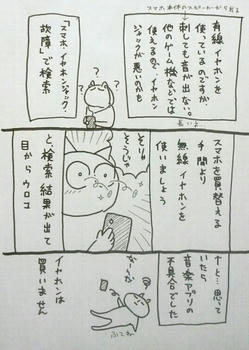 スマホ本体のスピーカーから出る
有線イヤホンを
使っているのですが、
刺しても音が出ない。
他のゲーム機などでは
使えるので、イヤホン
ジャックが悪いのかも
長いよ
「スマホ・イヤホンジャック・
故障」で検索
?
?
?
スマホを買替える
手間より
無線イヤホンを
使いましょう
そりゃ
そうじゃ
と、検索結果が出て
目からウロコ
ナーと…思って
いたら
音楽アプリの
不具合でした
イヤホンは
買いません
ふてね